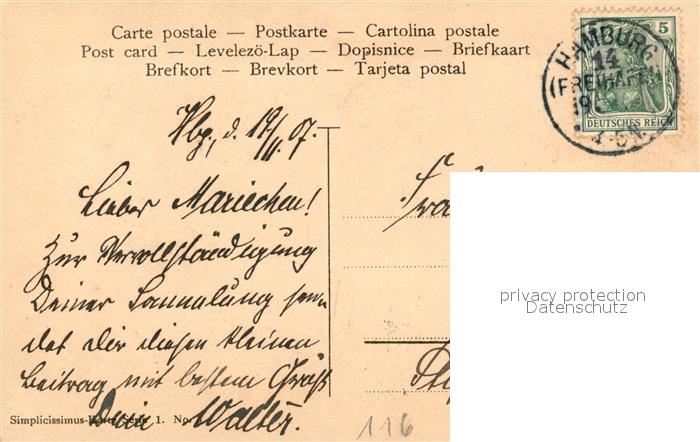 Carte postale — Postkarte — Cartolina postale
Post card — Levelezö-Lap — Dopisnice — Briefkaart
Brefkort — Brevkort — Tarjeta postal
5
HAMBURG
14
(FREIHAFEN)
19
4-5N.
DEUTSCHES REICH
Hbg, d. 19/II. 07.
Lieber Mariechen!
Zur Vervollständigung
Deiner Sammlung sen-
det Dir diesen kleinen
Beitrag mit bestem Gruß
Dein Walter.
Simplicissimus-Karte Serie 1. No.
116
privacy protection
Datenschutz